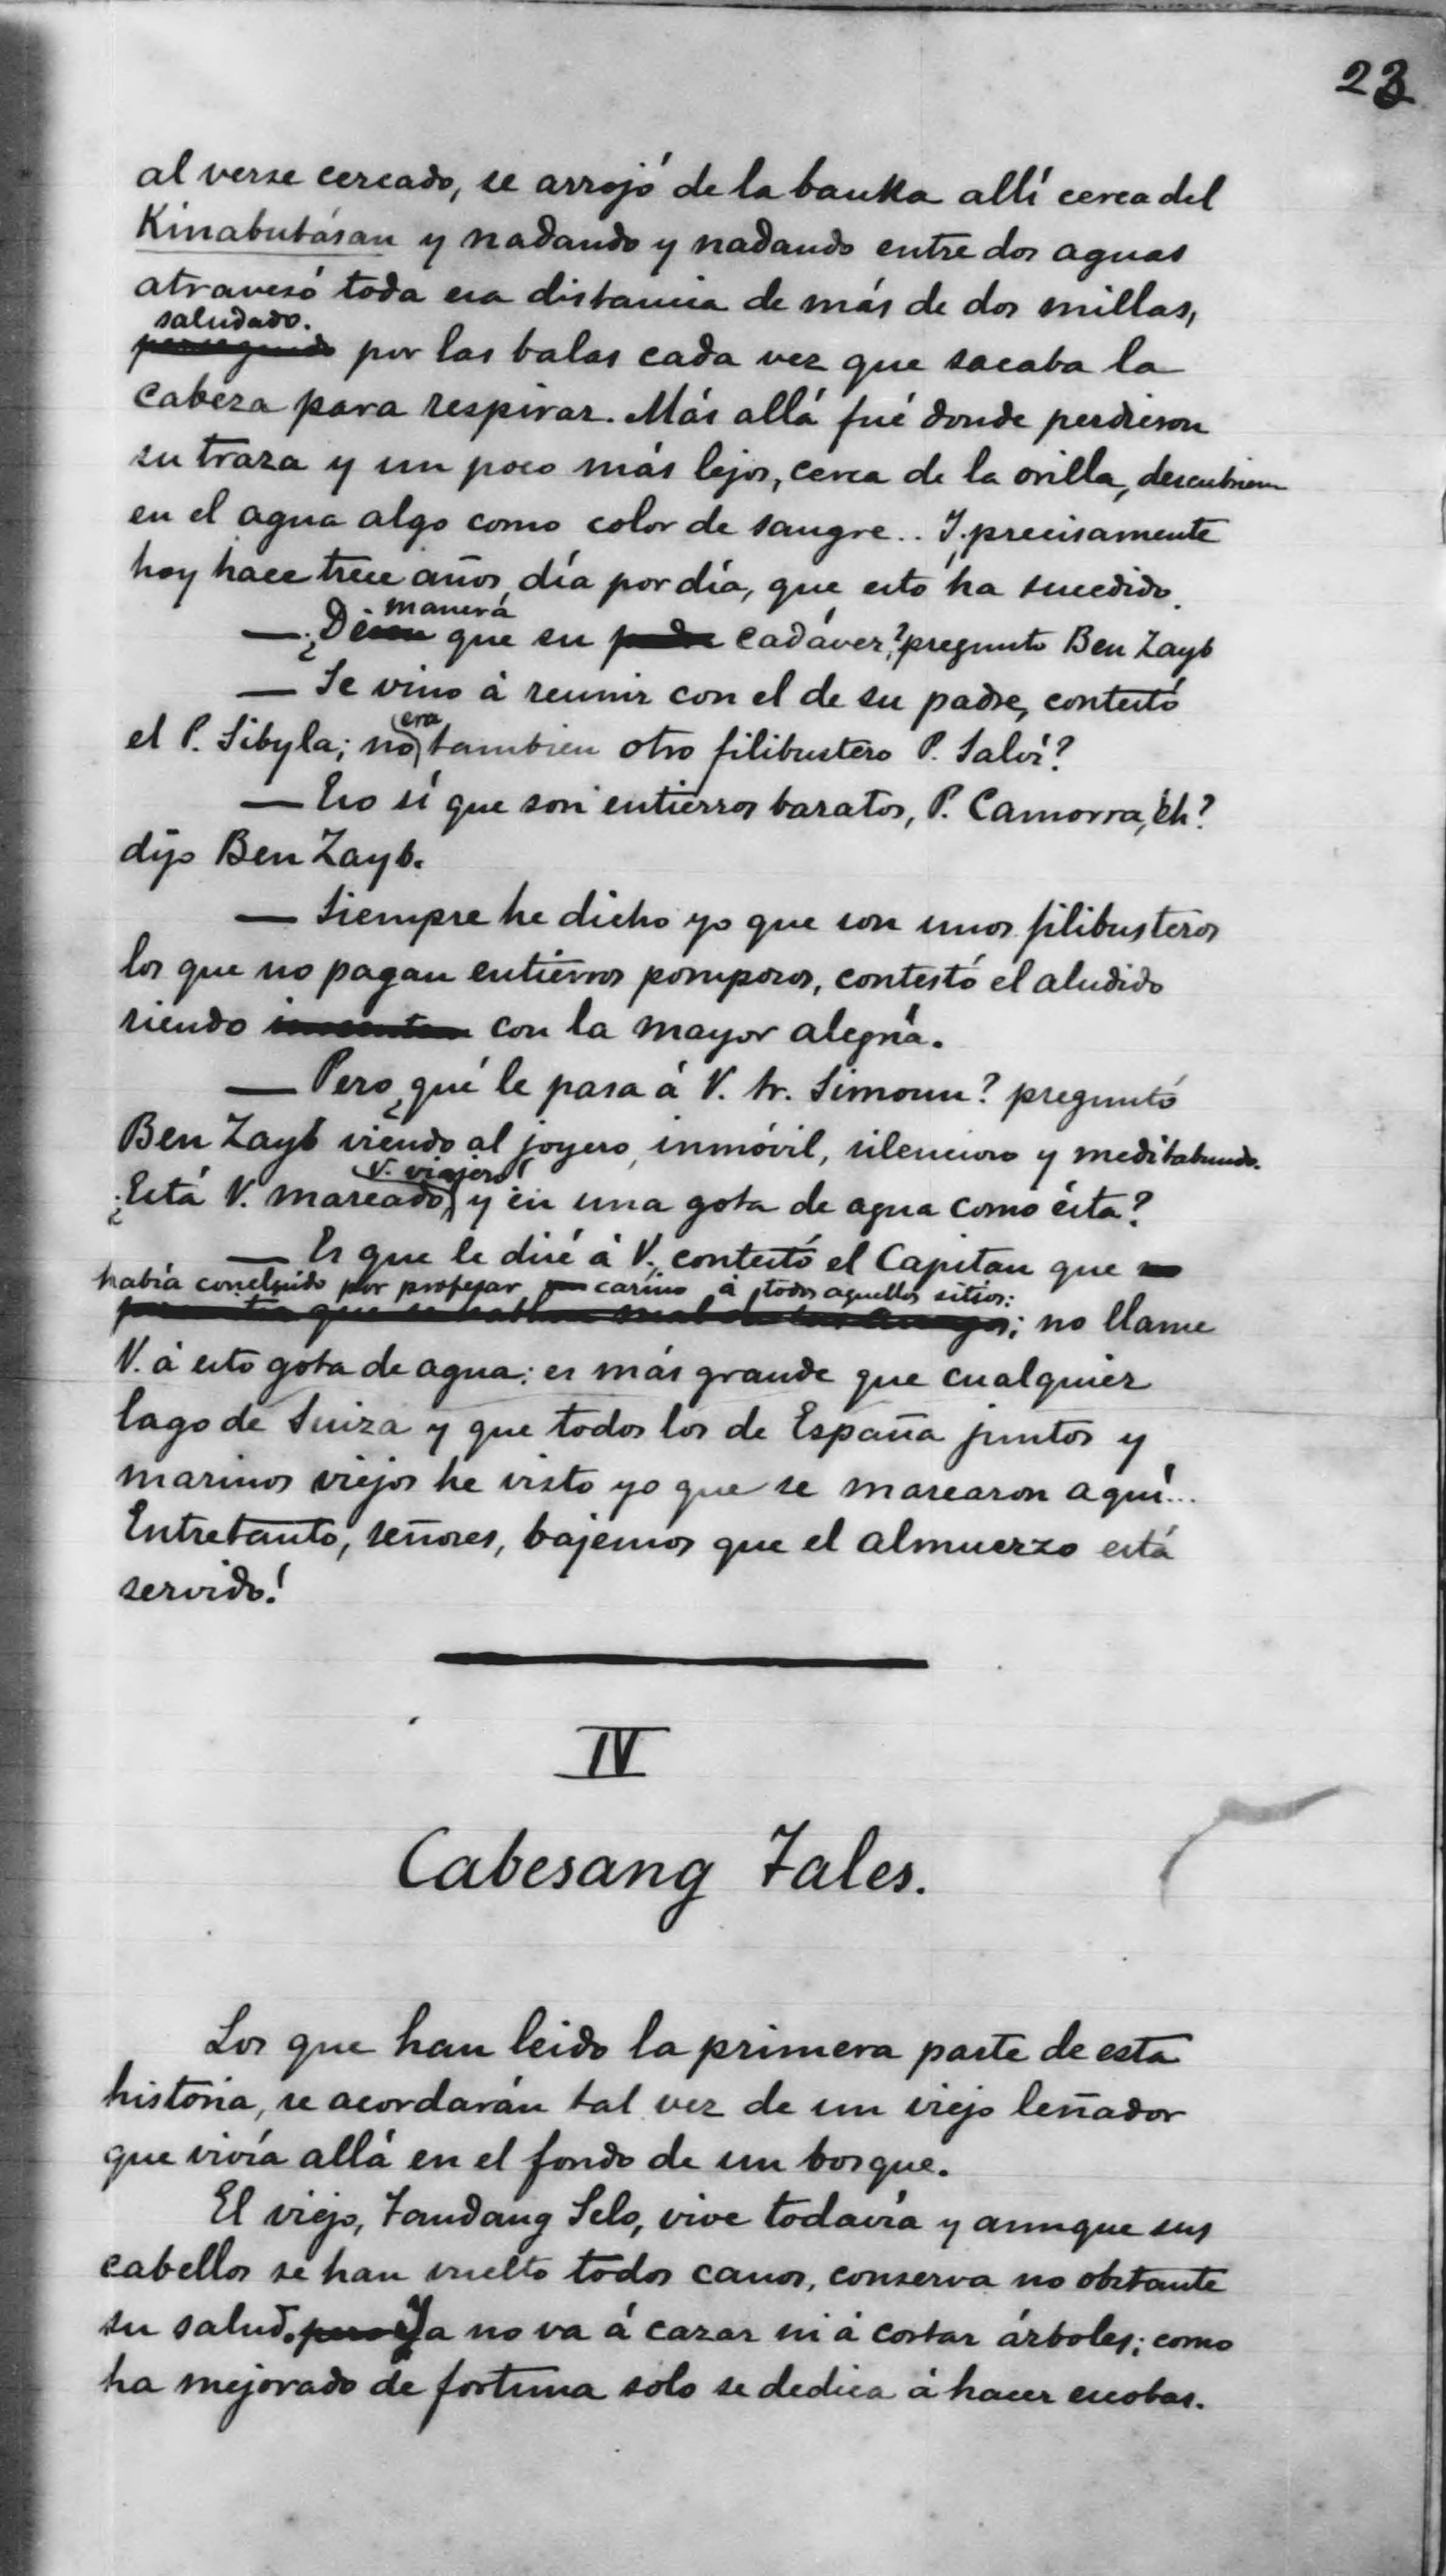 23
al verse cercado, se arrojó de la banka allí cerca del
Kinabutásan y nadando y nadando entre dos aguas
atravesó toda esa distancia de más de dos millas,
saludado.
perseguido por las balas cada vez que sacaba la
cabeza para respirar. Más allá fué donde perdieron
su traza y un poco más lejos, cerca de la orilla, descubrieron
en el agua algo como color de sangre.. Y precisamente
hoy hace trece años, día por día, que esto ha sucedido.
manera
— ¿De que su padre cadáver? preguntó Ben Zayb
— Se vino á reunir con el de su padre, contestó
era
el P. Sibyla; no tambien otro filibustero P. Salví?
— Eso sí que son entierros baratos, P. Camorra, éh?
dijo Ben Zayb.
— Siempre he dicho yo que son unos filibusteros
los que no pagan entierros pomposos, contestó el aludido
riendo con la mayor alegría.
— Pero ¿qué le pasa á V. Sr. Simoun? preguntó
Ben Zayb viendo al joyero, inmóvil, silencioso y meditabundo.
V. viajero!
¿Está V. mareado, y en una gota de agua como ésta?
— Es que le diré á V., contestó el Capitan que
había concluido por profesar cariño á todos aquellos sitios:
; no llame
V. á esto gota de agua: es más grande que cualquier
lago de Suiza y que todos los de España juntos y
marinos viejos he visto yo que se marearon aquí...
Entretanto, señores, bajemos que el almuerzo está
servido!
IV
Cabesang Tales.
Los que han leido la primera parte de esta
historia, se acordarán tal vez de un viejo leñador
que vivía allá en el fondo de un bosque.
El viejo, Tandang Selo, vive todavía y aunque sus
cabellos se han vuelto todos canos, conserva no obstante
su salud. pero Ya no va á cazar ni á cortar árboles; como
ha mejorado de fortuna solo se dedica á hacer escobas.